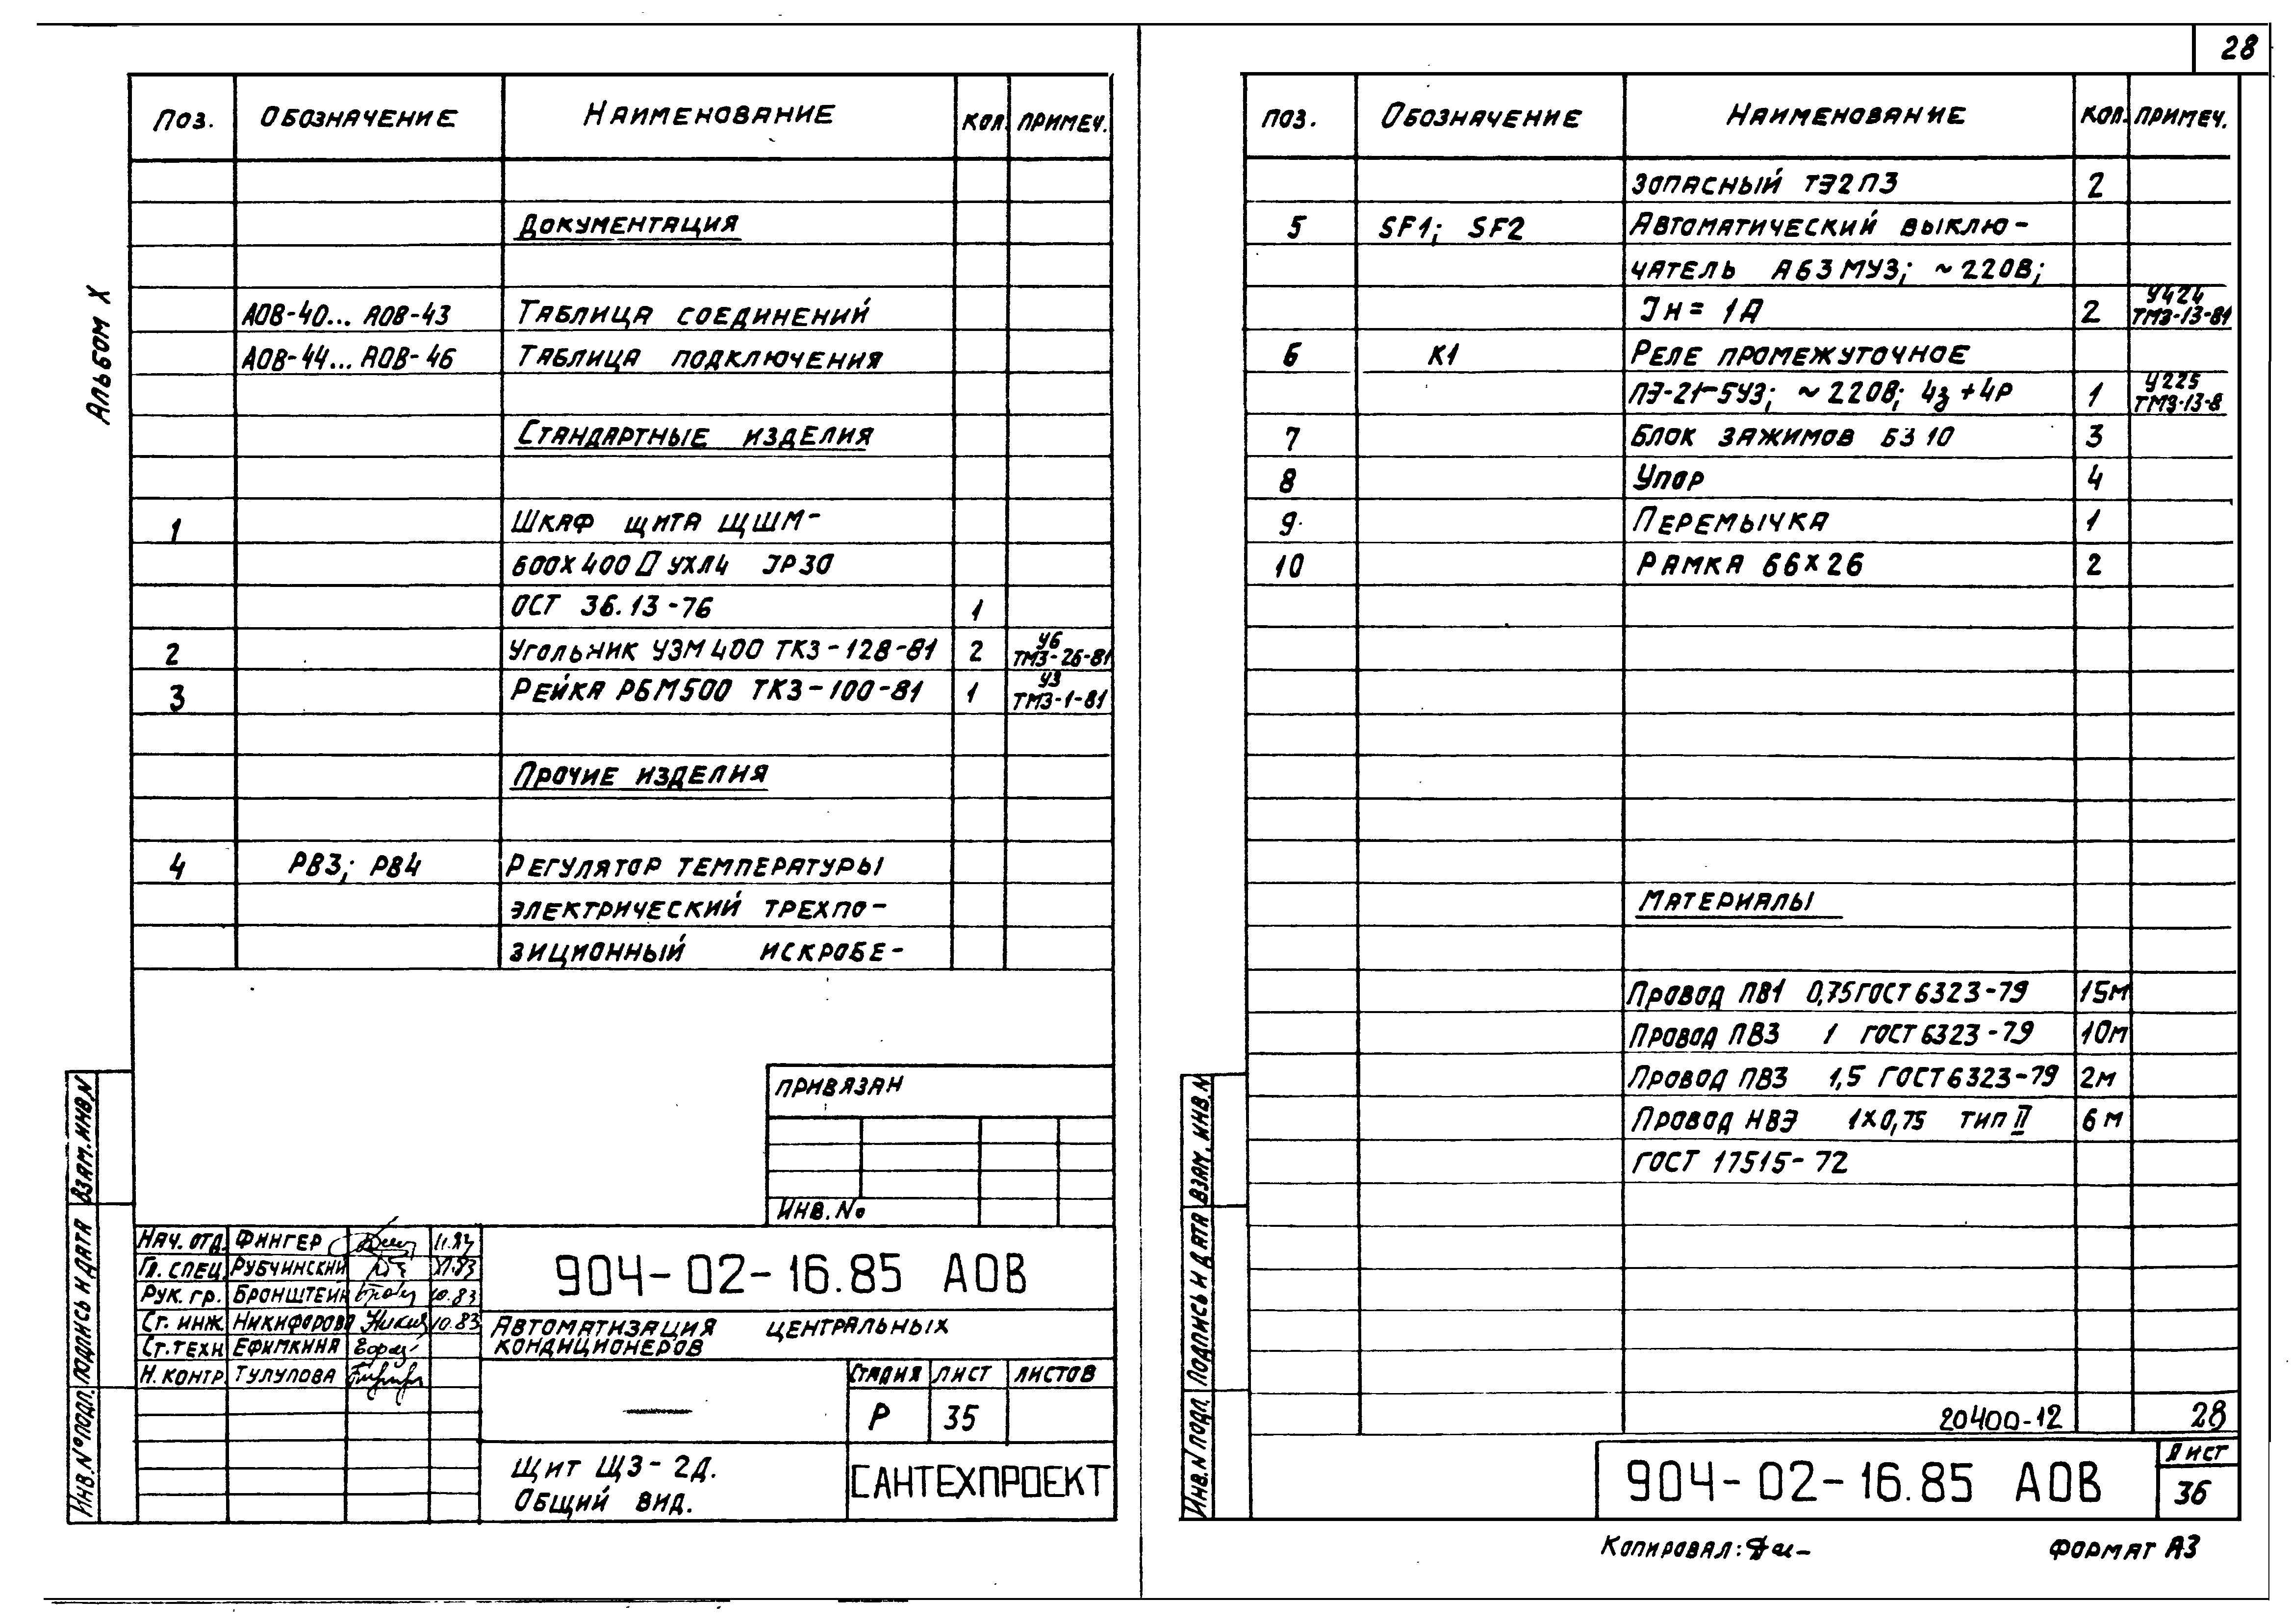 28
Альбом X
Поз. Обозначение Наименование Кол. Примеч.
Документация
АОВ-40... АОВ-43 Таблица соединений
АОВ-44... АОВ-46 Таблица подключения
Стандартные изделия
1 Шкаф щита ЩШМ-
600х400 II УХЛ4 IР30
ОСТ 36.13-76 1
2 Угольник УЗМ400 ТК3-128-81 2 У6 ТМ3-26-81
3 Рейка РБМ500 ТК3-100-81 1 У3 ТМ3-1-81
Прочие изделия
4 РВ3; РВ4 Регулятор температуры
электрический трехпо-
зиционный искробе-
Привязан
Инв. №
Нач. отд. Фингер 11.83
Гл. спец. Рубчинский XI.83
Рук. гр. Бронштейн 10.83
Ст. инж. Никифорова 10.83
Ст. техн Ефимкина
Н. контр. Тулупова
904-02-16.85 АОВ
Автоматизация центральных
кондиционеров
Стадия Лист Листов
Р 35
Щит ЩЗ-2Д.
Общий вид.
САНТЕХПРОЕКТ
Взам. инв. N
Подпись и дата
Инв. N° подл.
Поз. Обозначение Наименование Кол. Примеч.
зопасный ТЭ2П3 2
5 SF1; SF2 Автоматический выклю-
чатель А63МУ3; ~220В;
Iн = 1А 2 У424 ТМ3-13-81
6 К1 Реле промежуточное
ПЭ-21-5У3; ~220В; 4з+4р 1 У225 ТМ3-13-8
7 Блок зажимов БЗ 10 3
8 Упор 4
9 Перемычка 1
10 Рамка 66х26 2
Материалы
Провод ПВ1 0,75 ГОСТ 6323-79 15м
Провод ПВ3 1 ГОСТ 6323-79 10м
Провод ПВ3 1,5 ГОСТ 6323-79 2м
Провод НВЭ 1х0,75 тип II 6м
ГОСТ 17515-72
20400-12 28
904-02-16.85 АОВ
Лист
36
Взам. инв. N
Подпись и дата
Инв. N подл.
Копировал: Формат А3